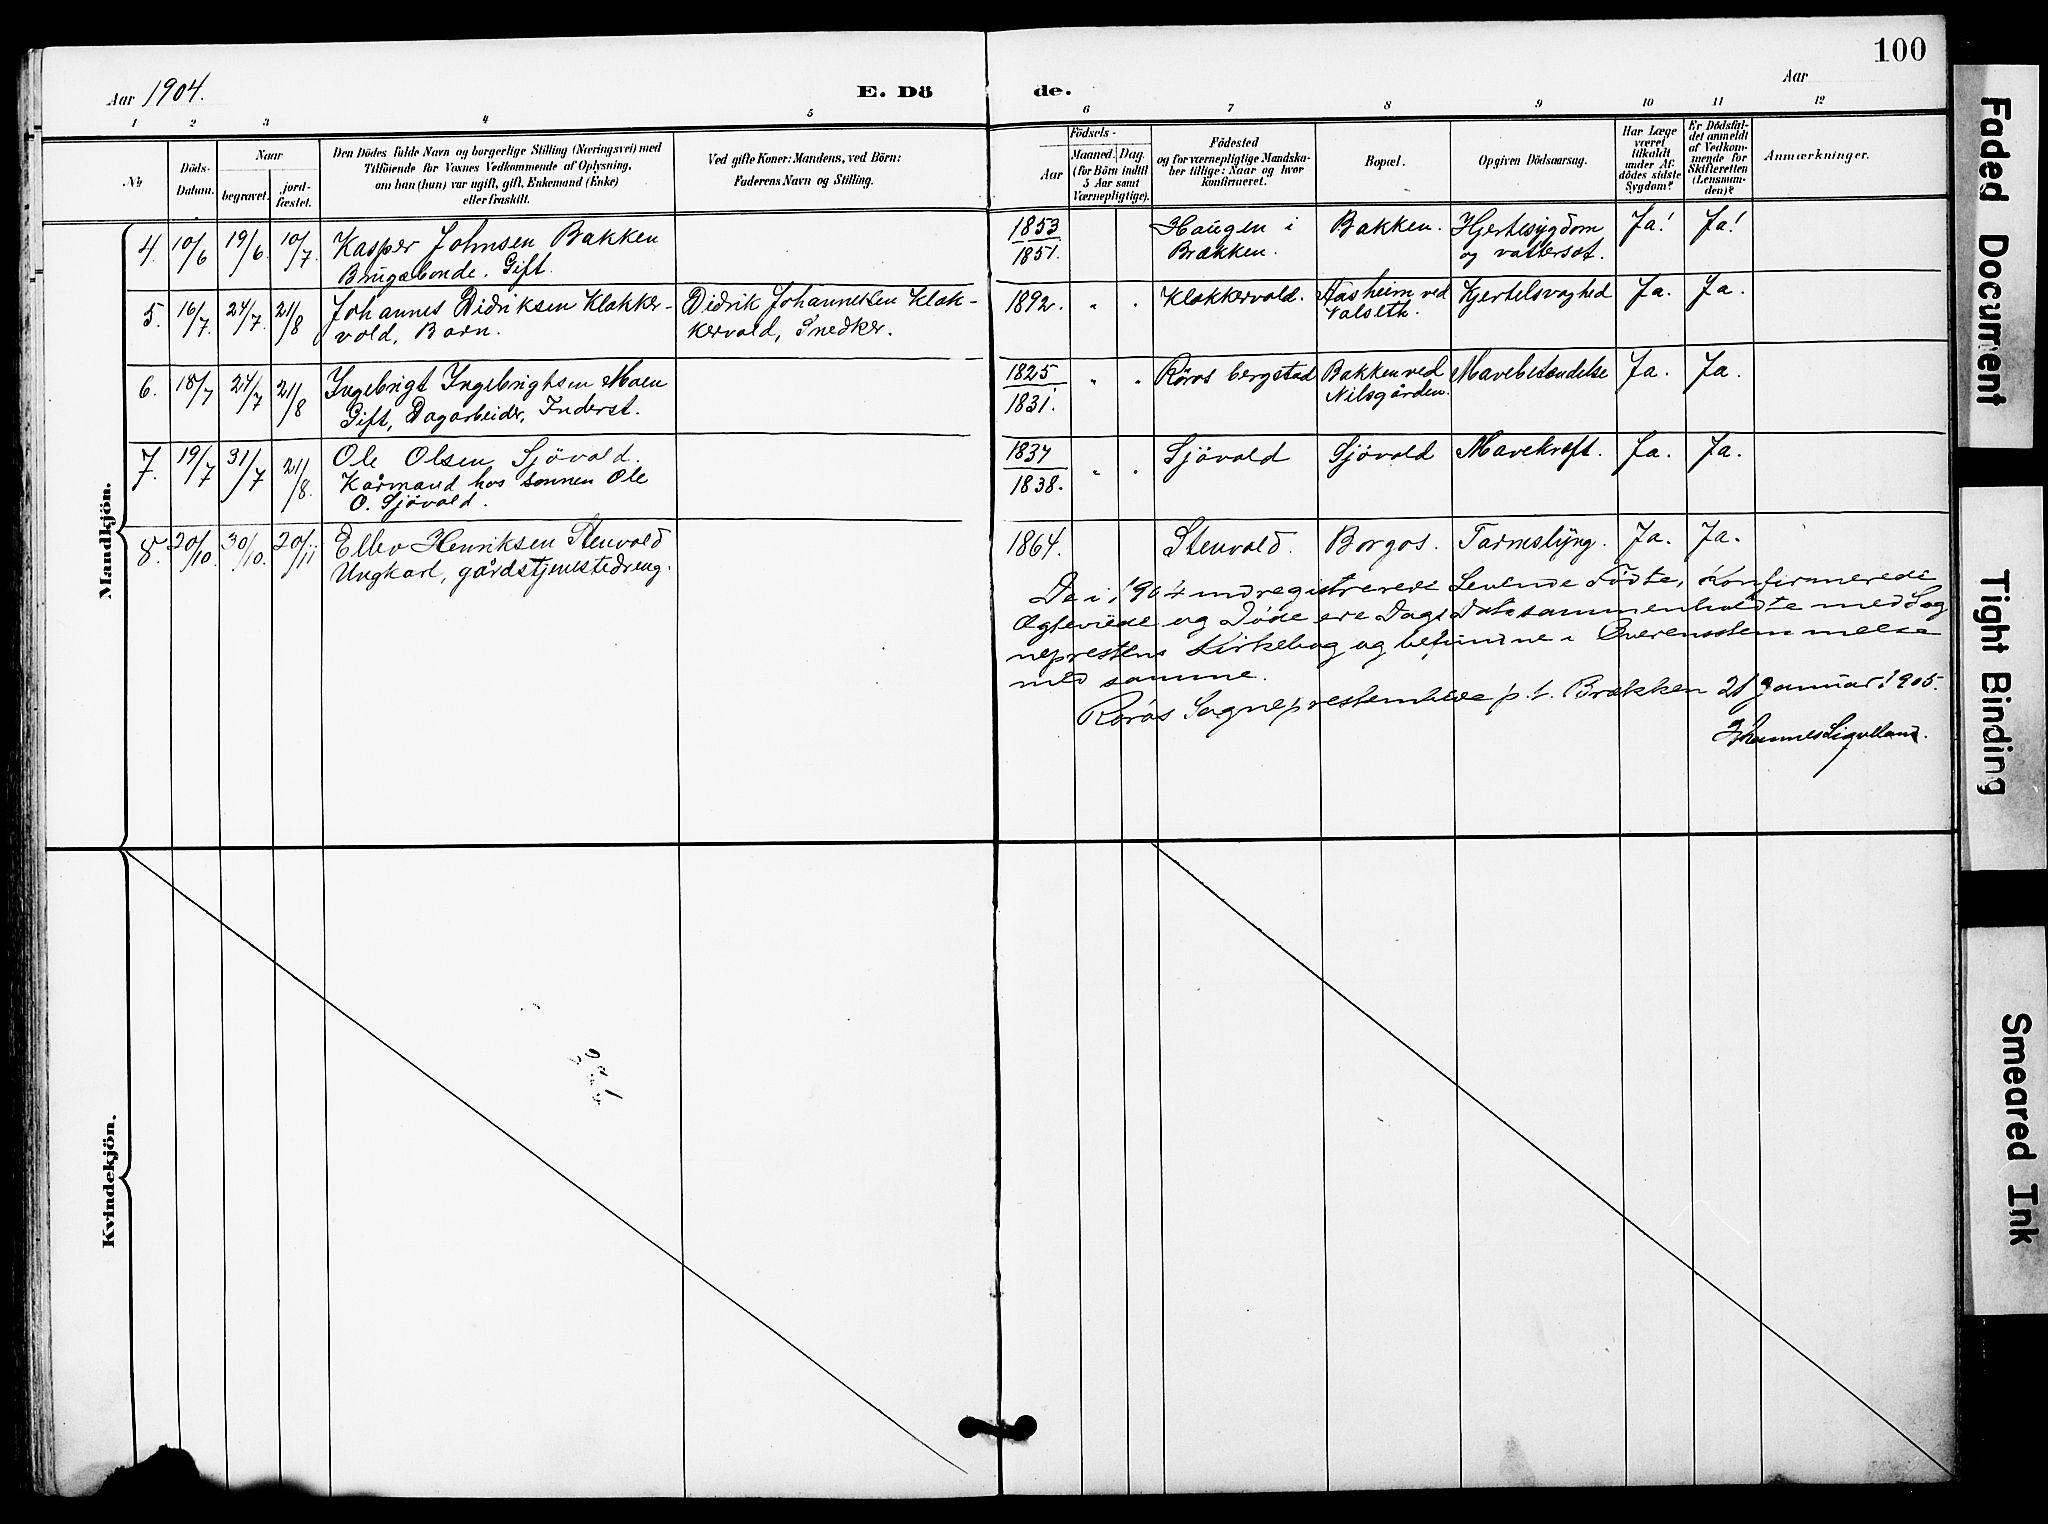 100
Aar 1904.
E. Dö
de.
Aar
1 2 3 4 5 6 7 8 9 10 11 12
No
Döds-
Datum.
Naar
begravet.
jord-
fæstet.
Den Dödes fulde Navn og borgerlige Stilling (Næringsvei) med
Tilföiende for Voxnes Vedkommende af Oplysning,
om han (hun) var ugift, gift, Enkemand (Enke)
eller fraskilt.
Ved gifte Koner: Mandens, ved Börn:
Faderens Navn og Stilling.
Födsels-
Aar
Maaned. Dag.
(for Börn indtil
5 Aar samt
Værnepligtige).
Födested
og for værnepligtige Mandska-
ber tillige: Naar og hvor
konfirmeret.
Bopæl.
Opgiven Dödsaarsag.
Har Læge
været
tilkaldt
under Af-
dödes sidste
Sygdom?
Er Dödsfal-
det anmeldt
af Vedkom-
mende for
Skifteretten
(Lensman-
den)?
Anmærkninger.
Mandkjön.
4. 10/6 19/6. 10/7. Kasper Johnsen Bakken
Brugsbonde. Gift.
1853
1851.
Haugen i
Brækken.
Bakken.
Hjertesygdom
og vattersot.
Ja! Ja!
5. 16/7. 24/7. 21/8 Johannes Didriksen Klokker-
vold, Barn.
Didrik Johannessen Klok-
kervold, Snedker.
1892. " " Klokkervold.
Aasheim ved
Valseth.
Kjertelsvaghed
Ja. Ja.
6. 18/7 24/7 21/8 Ingebrigt Ingebrightsen Moen
Gift, Dagarbeider, Inderst.
1825
1831.
" " Röros bergstad
Bakken ved
Nilsgården.
Mavebetændelse
Ja. Ja.
7. 19/7 31/7 21/8. Ole Olsen Sjövold.
Kårmand hos sønnen Ole
O. Sjövold.
1837
1838.
" " Sjövold Sjövold Mavekræft. Ja. Ja.
8. 20/10. 30/10. 20/11 Ellev Henriksen Stenvold
Ungkarl, gårdstjenestedreng.
1864. Stenvold. Borgos. Tarmslyng. Ja. Ja.
De i 1904 indregistrerede Levende Fødte, Konfirmerede
Ægteviede og Døde ere Dags Dato sammenholdte med Sog
neprestens Kirkebog og befundne i Overensstemmelse
med samme.
Rorøs Sogneprestembede p. t. Brækken 21 Januar 1905.
Kvindekjön.
Faded Document
Tight Binding
Smeared Ink